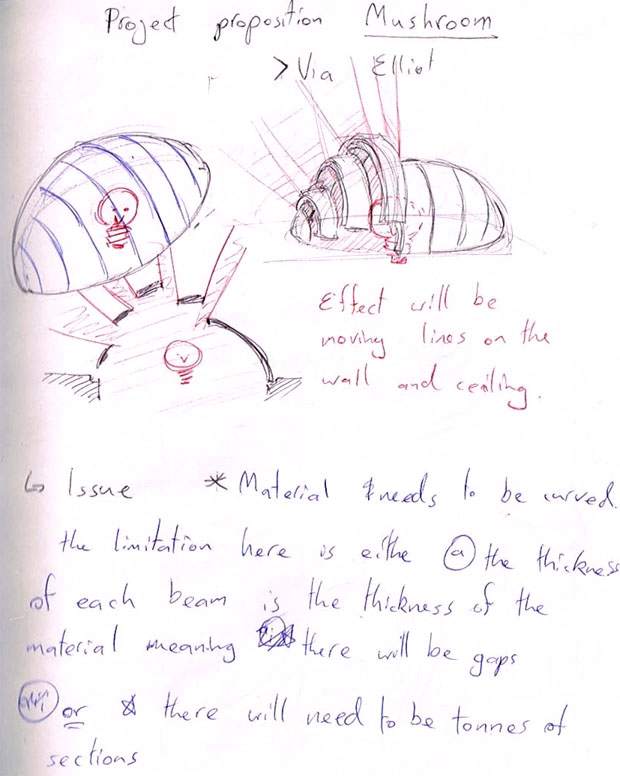 Project proposition Mushroom
> Via Elliot
Effect will be
moving lines on the
wall and ceiling.
↳ Issue * Material needs to be curved.
the limitation here is eithe ⓐ the thickness
of each beam is the thickness of the
material meaning there will be gaps
or there will need to be tonnes of
sections